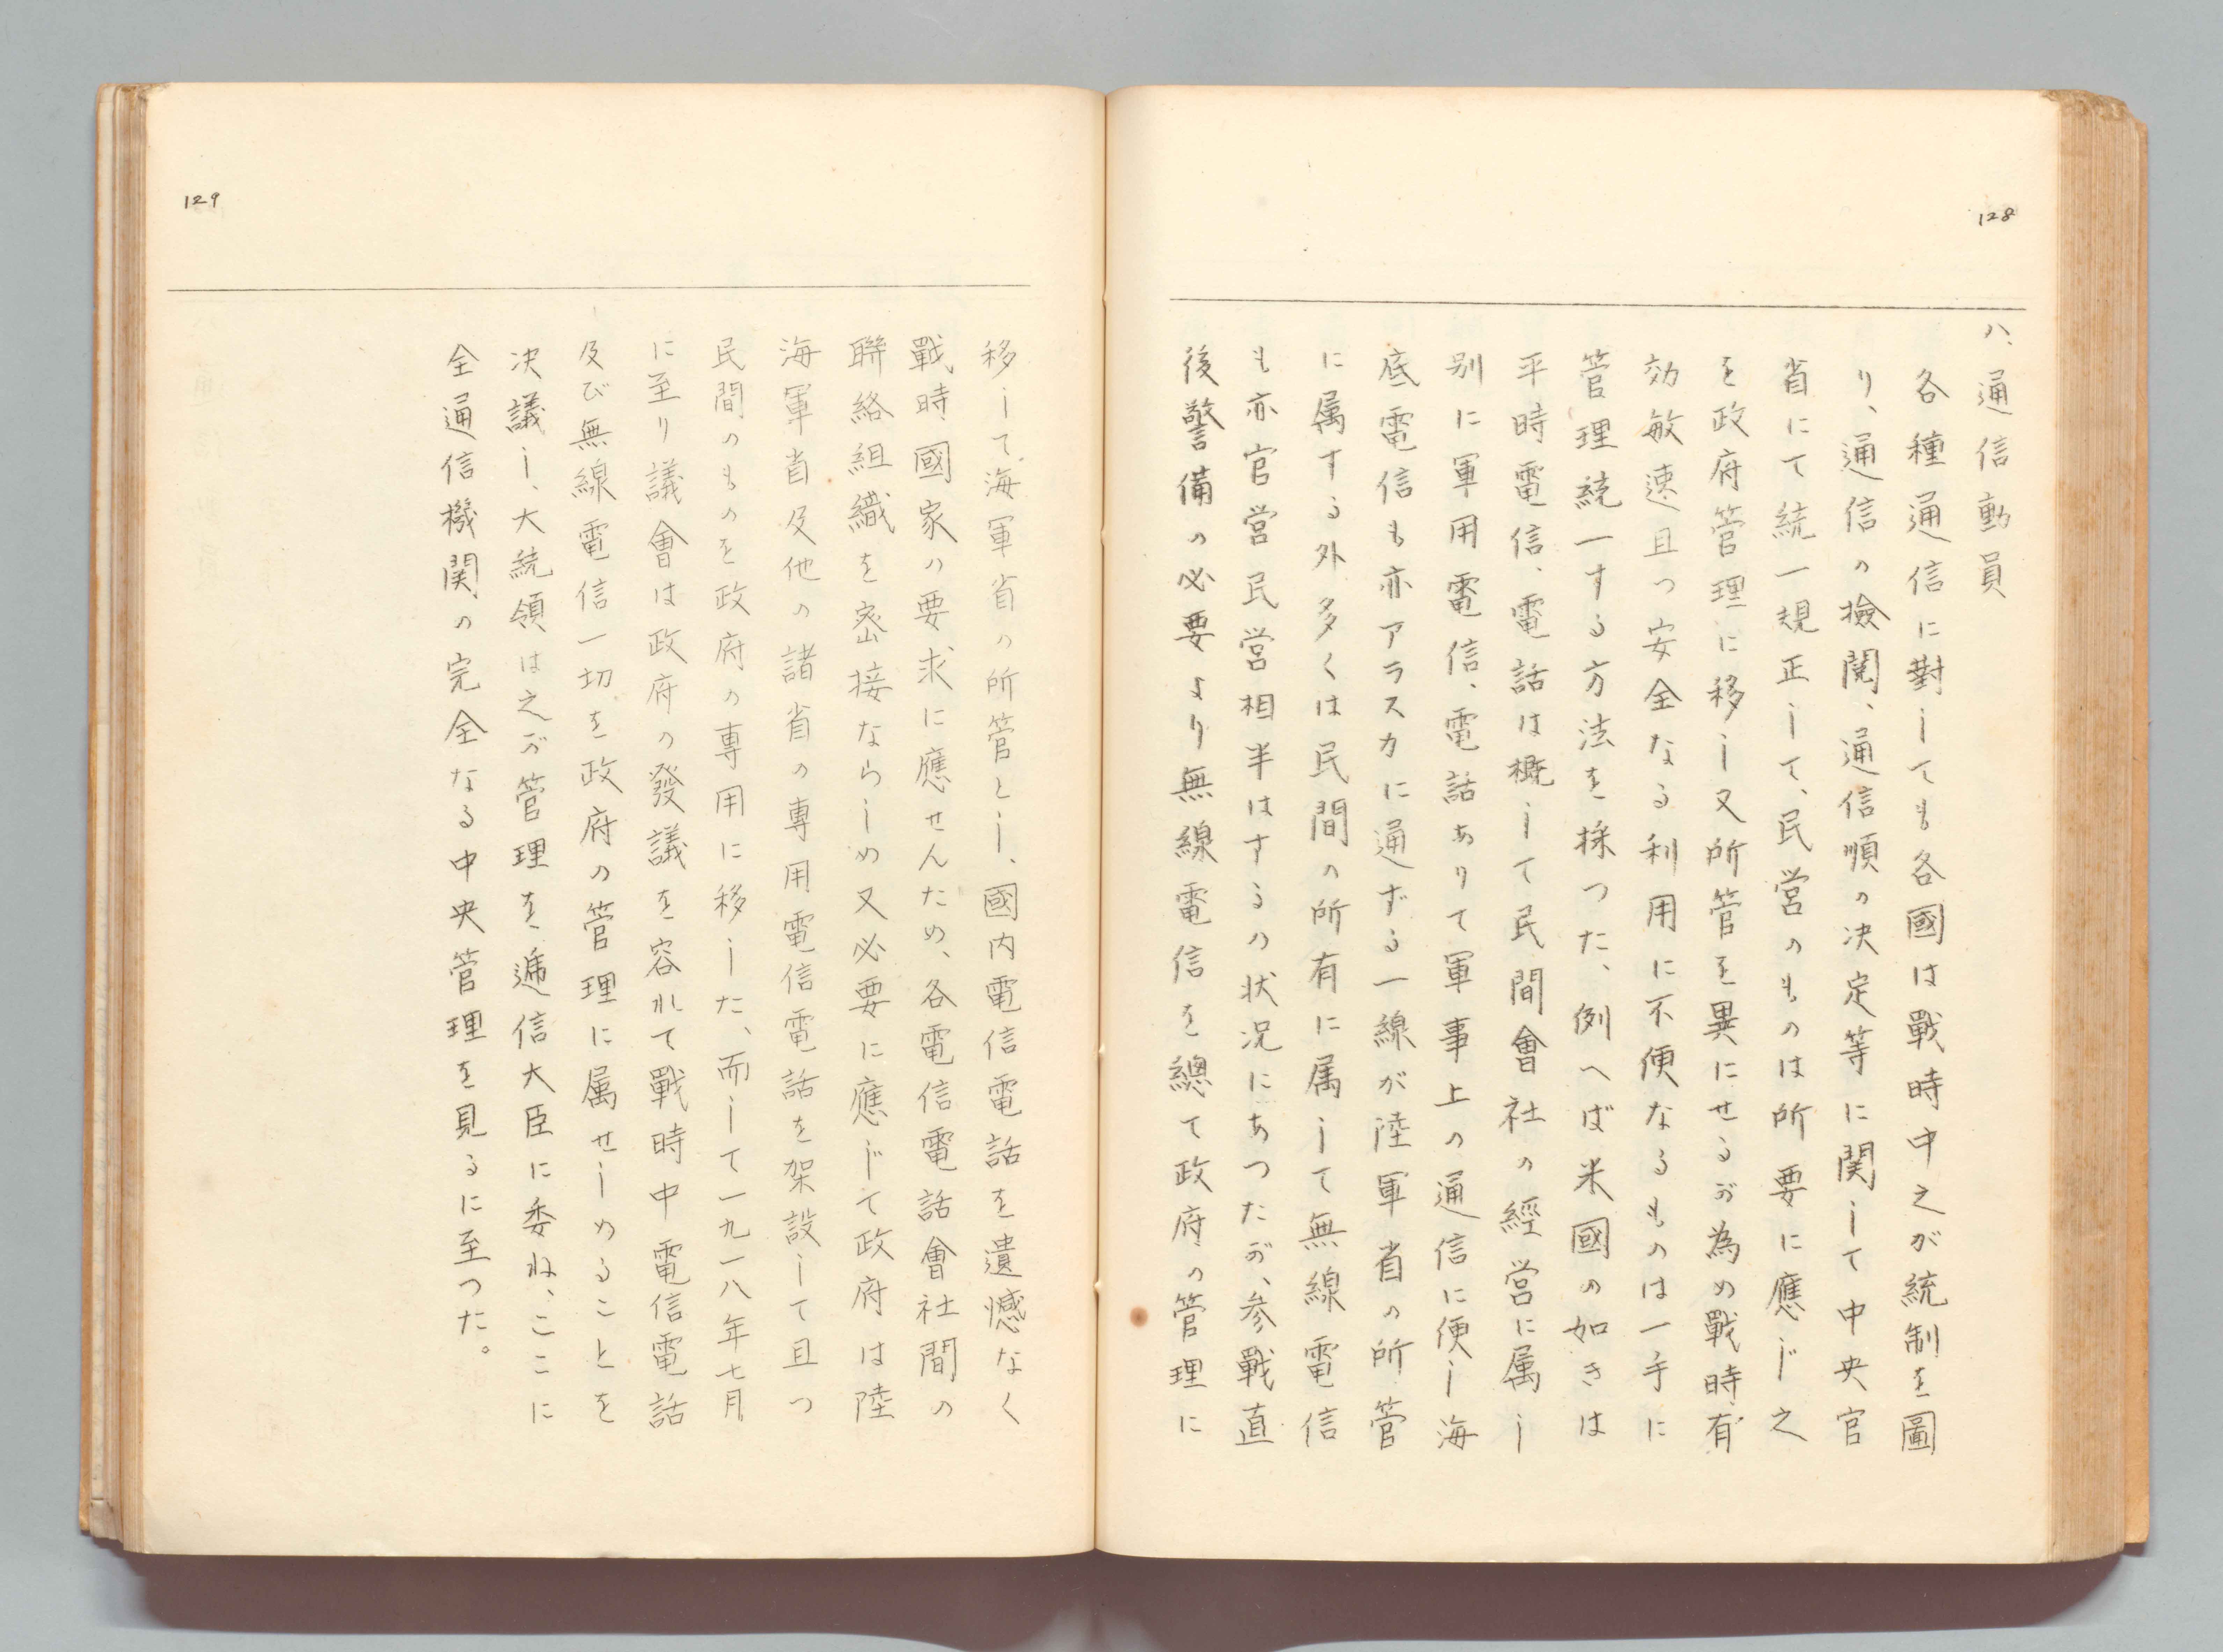 128
八、通信動員
各種通信に對しても各國は戰時中之が統制を圖
り、通信の檢閲、通信順の決定等に関して中央官
省にて統一規正して、民営のものは所要に應じ之
を政府管理に移し又所管を異にせるが為め戰時有
効敏速且つ安全なる利用に不便なるものは一手に
管理統一する方法を採つた、例へば米國の如きは
平時電信、電話は概して民間會社の經営に属し
別に軍用電信、電話ありて軍事上の通信に便し海
底電信も亦アラスカに通ずる一線が陸軍省の所管
に属する外多くは民間の所有に属して無線電信
も亦官営民営相半はするの状況にあつたが、参戰直
後警備の必要より無線電信を總て政府の管理に
129
移して海軍省の所管とし、國内電信電話を遺憾なく
戰時國家の要求に應せんため、各電信電話會社間の
聯絡組織を密接ならしめ又必要に應じて政府は陸
海軍省及他の諸省の専用電信電話を架設して且つ
民間のものを政府の専用に移した、而して一九一八年七月
に至り議會は政府の發議を容れて戰時中電信電話
及び無線電信一切を政府の管理に属せしめることを
決議し、大統領は之が管理を逓信大臣に委ね、ここに
全通信機関の完全なる中央管理を見るに至つた。